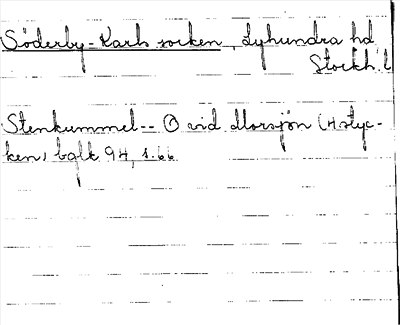 Söderby-Karls socken, Lyhundra hd
Stockh. l
Stenkummel-- O vid Marsjön (4 styc-
ken, bglk 94, s. 66